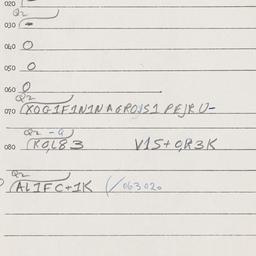 020
Q2
030 -
040 O
050 O
060 O
Q2
070 KOG1F1N1NAGROJS1 PEJRU-
Q2 -a
080 K0,L83 V15+0,R3K
Q2
AL1FC+1K (/063020